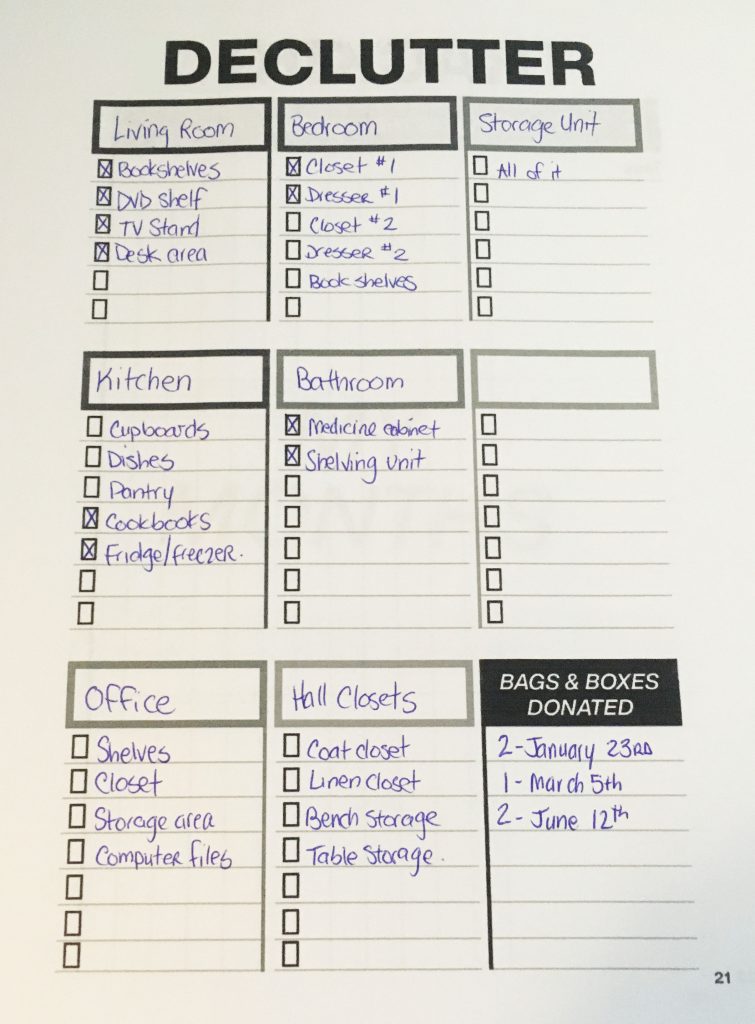 DECLUTTER
Living Room
Bookshelves
DVD shelf
TV Stand
Desk area
Bedroom
Closet #1
Dresser #1
Closet #2
Dresser #2
Book shelves
Storage Unit
All of it
Kitchen
Cupboards
Dishes
Pantry
Cookbooks
Fridge/freezer.
Bathroom
Medicine cabinet
Shelving unit
Office
Shelves
Closet
Storage area
Computer files
Hall Closets
Coat closet
Linen closet
Bench Storage
Table Storage.
BAGS & BOXES
DONATED
2-January 23RD
1- March 5th
2- June 12th
21